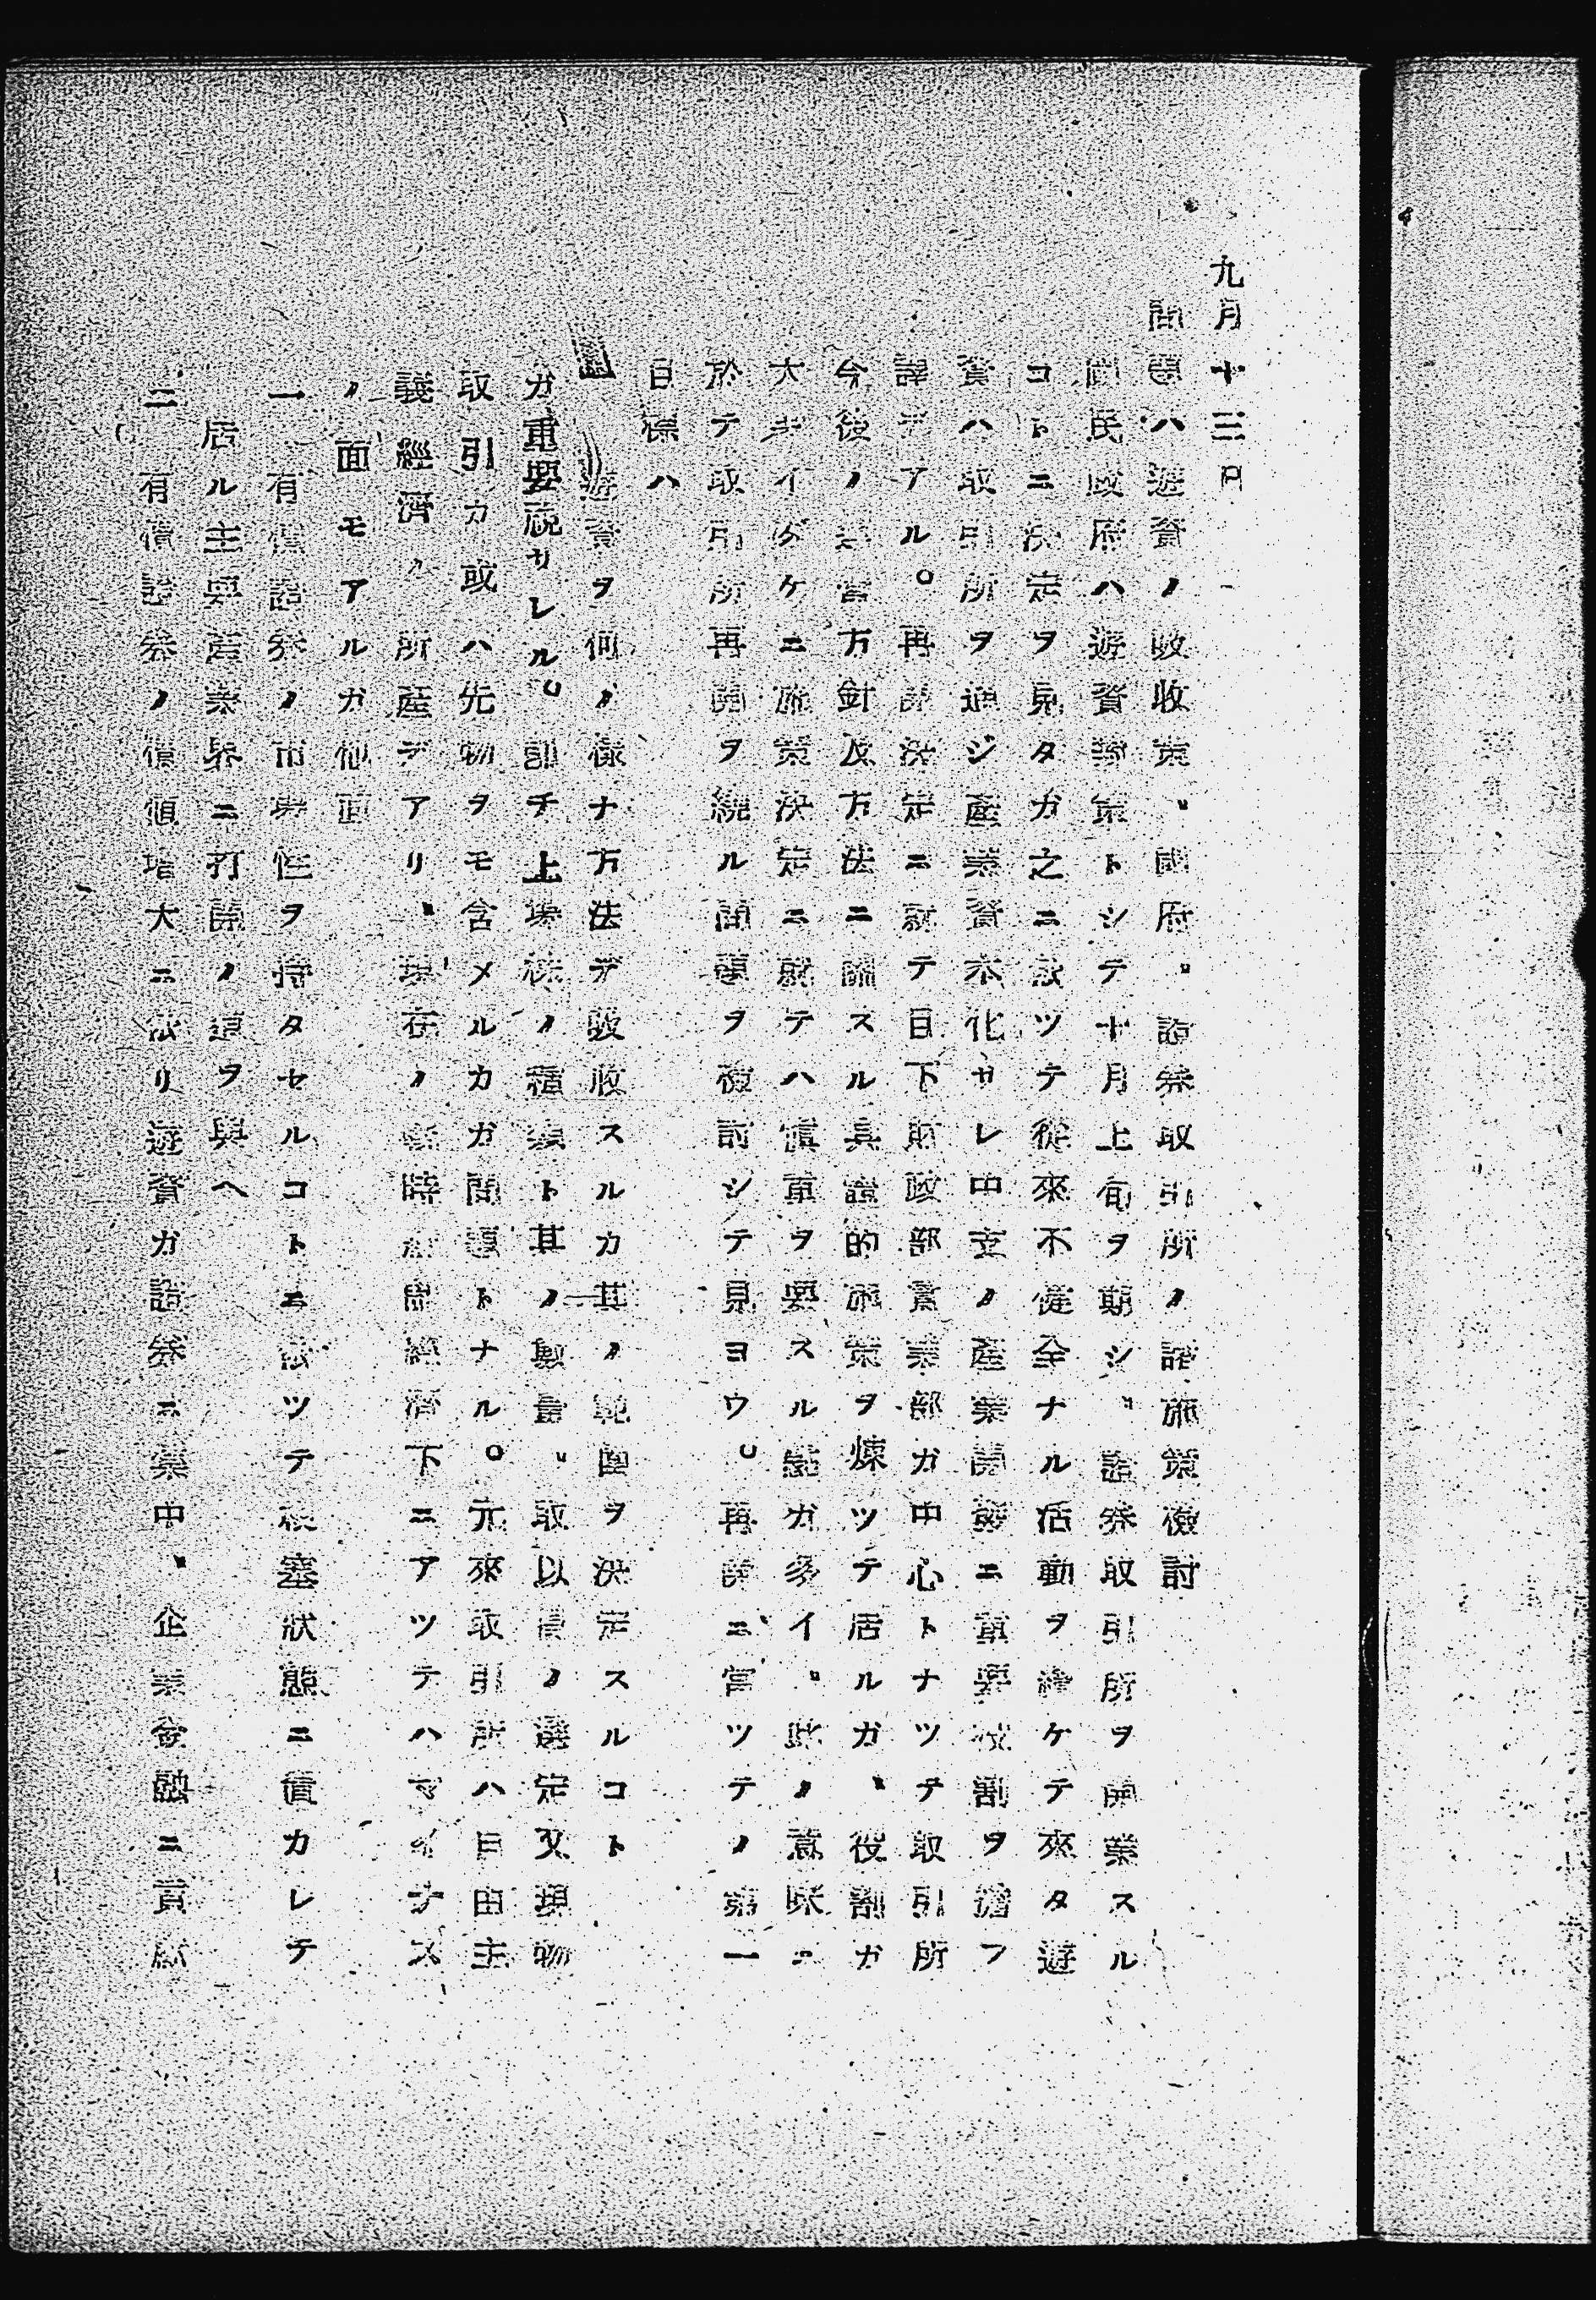 九月十三日
問題ハ遊資ノ吸收策、國府、證券取引所ノ諸施策檢討
國民政府ハ遊資對策トシテ十月上旬ヲ期シ、證券取引所ヲ開業スル
コトニ決定ヲ見タガ之ニ依ツテ從來不健全ナル活動ヲ續ケテ來タ遊
資ハ取引所ヲ通ジ產業資本化サレ中支ノ產業開發ニ重要役割ヲ擔フ
譯デアル。再開決定ニ就テ目下財政部實業部ガ中心トナツテ取引所
今後ノ運營方針及方法ニ關スル具體的施策ヲ煉ツテ居ルガ、役割ガ
大キイダケニ施策決定ニ就テハ愼重ヲ要スル點ガ多イ。此ノ意味ニ
於テ取引所再開ヲ繞ル問題ヲ檢討シテ見ヨウ。再開ニ當ツテノ第一
目標ハ
遊資ヲ何ノ樣ナ方法デ吸收スルカ其ノ範圍ヲ決定スルコト
ガ重要視サレル。卽チ上場株ノ種類ト其ノ數量、取以員ノ選定又現物
取引カ或ハ先物ヲモ含メルカガ問題トナル。元來取引所ハ自由主
義經濟ノ所產デアリ、現在ノ戰時統制經濟下ニアツテハマイナス
ノ面モアルガ他面
一 有價證券ノ市場性ヲ持タセルコトニ依ツテ梗塞狀態ニ置カレテ
居ル主要產業界ニ打開ノ道ヲ與ヘ
二 有價證券ノ價値增大ニ依リ遊資ガ證券ニ集中、企業金融ニ貢獻